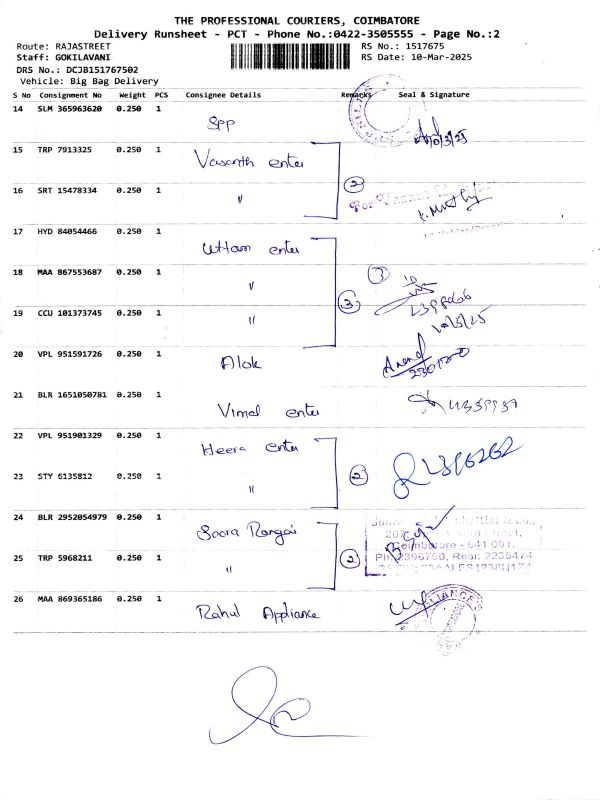 THE PROFESSIONAL COURIERS, COIMBATORE
Delivery Runsheet - PCT - Phone No.:0422-3505555 - Page No.:2
Route: RAJASTREET RS No.: 1517675
Staff: GOKILAVANI RS Date: 10-Mar-2025
DRS No.: DCJB151767502
Vehicle: Big Bag Delivery
S No Consignment No Weight PCS Consignee Details Remarks Seal & Signature
14 SLM 365963620 0.250 1 Spp
15 TRP 7913325 0.250 1 Vasanth enter
16 SRT 15478334 0.250 1 "
2
For
17 HYD 84054466 0.250 1 Uttam enter
18 MAA 867553687 0.250 1 "
19 CCU 101373745 0.250 1 "
3
20 VPL 951591726 0.250 1 Alok
Anand
21 BLR 1651050781 0.250 1 Vimal enter
22 VPL 951901329 0.250 1 Heera enter
23 STY 6135812 0.250 1 "
2
24 BLR 2952054979 0.250 1 Soora Rangai
25 TRP 5968211 0.250 1 "
2
Coimbatore - 641 001.
Ph: 2396760, Resi: 2235474
26 MAA 869365186 0.250 1 Rahul Appliance